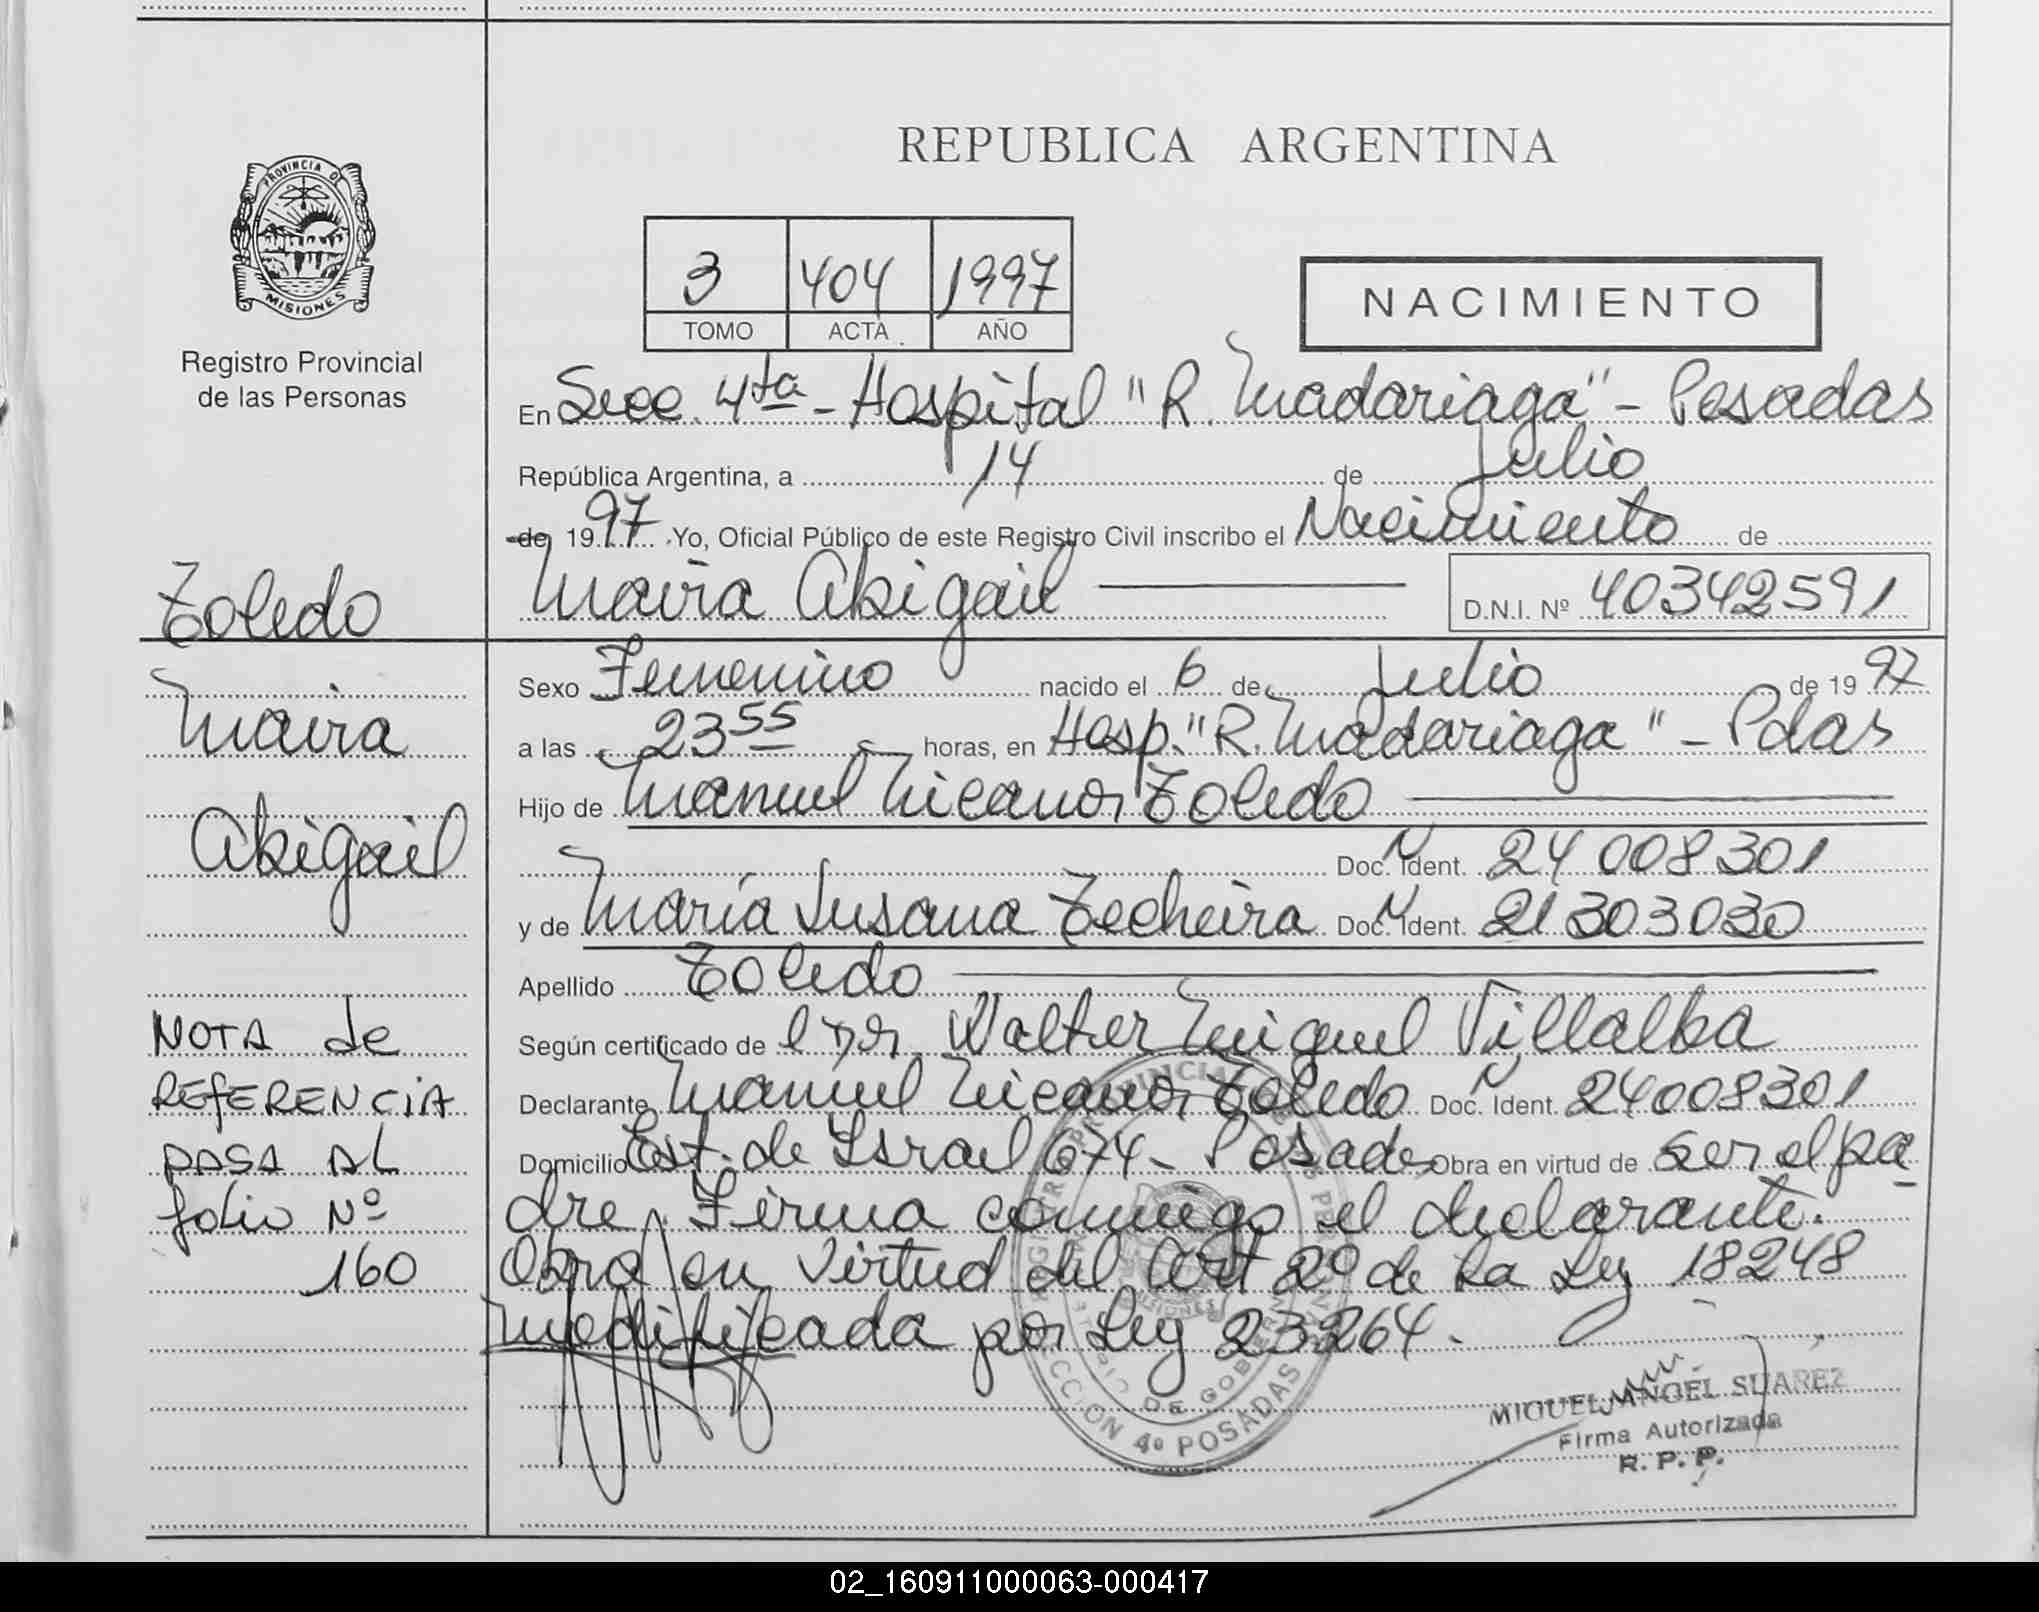 REPUBLICA ARGENTINA
PROVINCIA DE
MISIONES
Registro Provincial
de las Personas
3 404 1997
TOMO ACTA AÑO
NACIMIENTO
En Secc. 4ta - Hospital "R. Madariaga" - Posadas
República Argentina, a 14 de Julio
de 1997. Yo, Oficial Público de este Registro Civil inscribo el Nacimiento de
Maira Abigail D.N.I. Nº 40342591
Toledo
Maira
Abigail
Sexo Femenino nacido el 6 de Julio de 1997
a las 23 55 horas, en Hosp. "R. Madariaga" - Pdas
Hijo de Manuel Nicanor Toledo
Doc. Ident. 24 008 301
y de María Susana Techeira Doc. Ident. 21 303 030
Apellido Toledo
Según certificado de Walter Miguel Villalba
Declarante Manuel Nicanor Toledo Doc. Ident. 24008301
Domicilio Est. de Israel 674 - Posadas Obra en virtud de ser el pa
dre. Firma conmigo el declarante.
Obra en virtud del Art 2º de la Ley 18248
modificada por Ley 23264.
NOTA de
REFERENCIA
PASA AL
folio Nº
160
SECCION 4º POSADAS
MIGUEL ANGEL SUAREZ
Firma Autorizada
R. P. P.
02_160911000063-000417